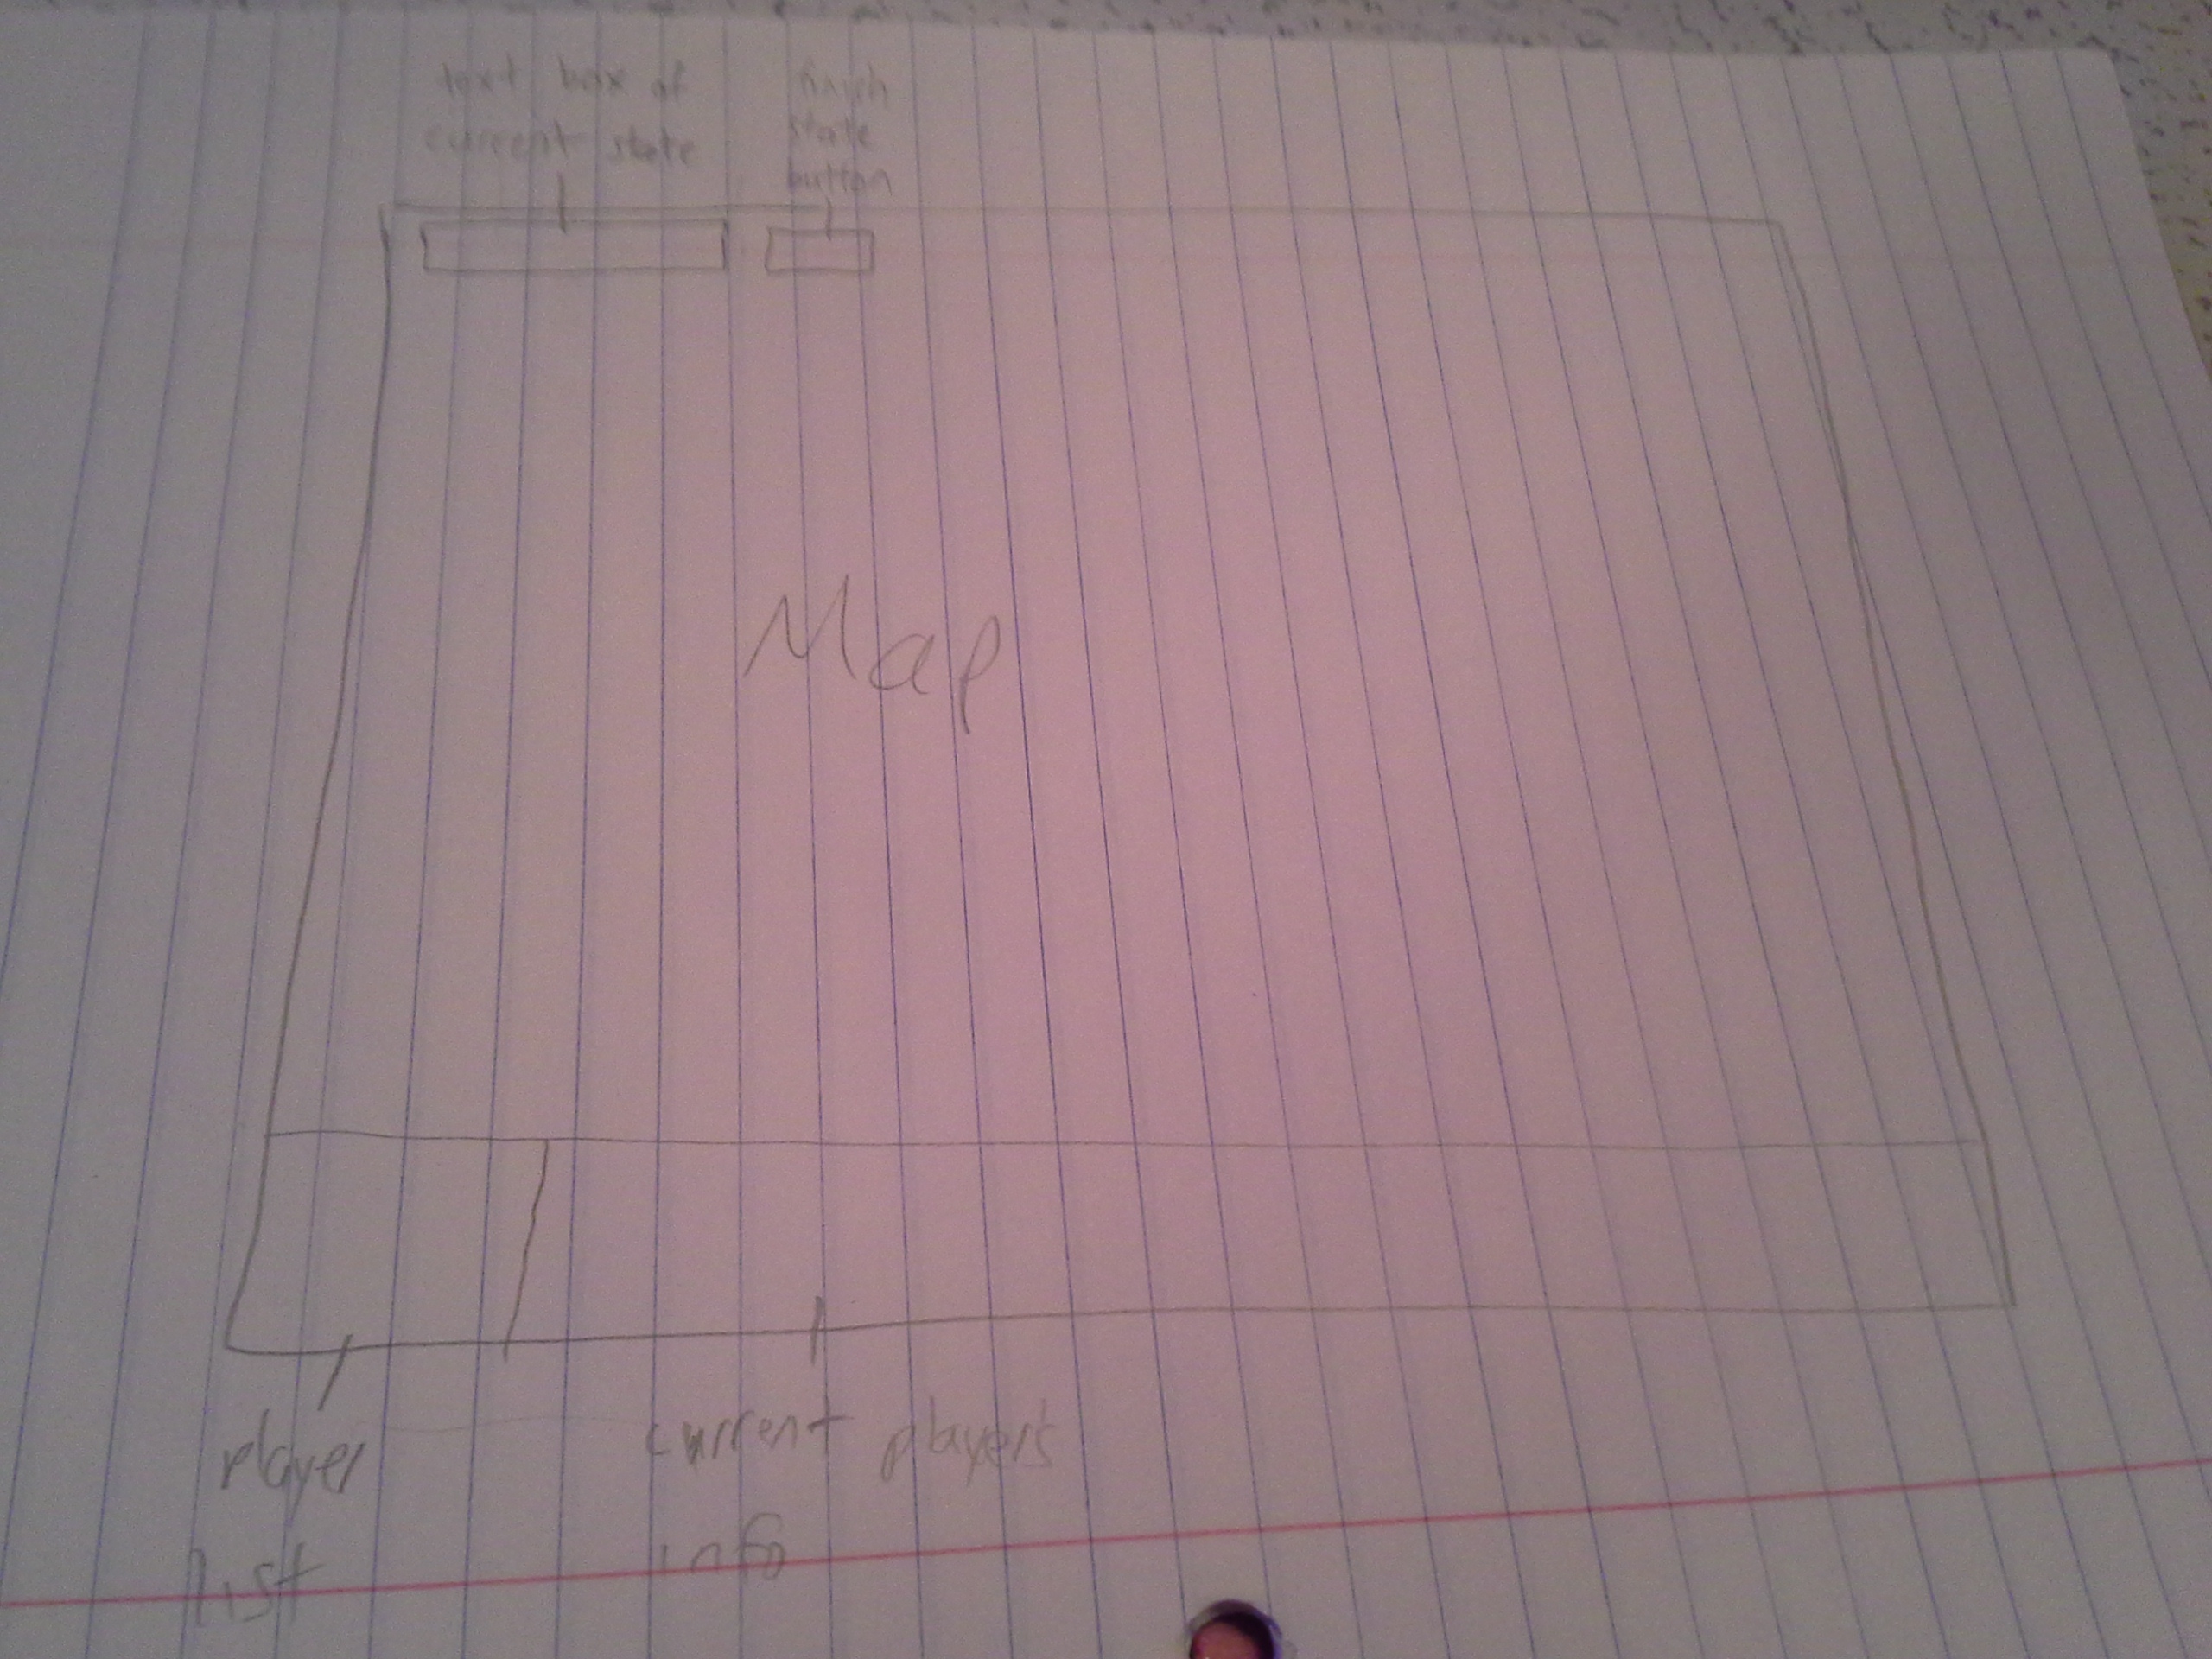 text box of
current state
finish
state
button
Map
player
list
current players
info